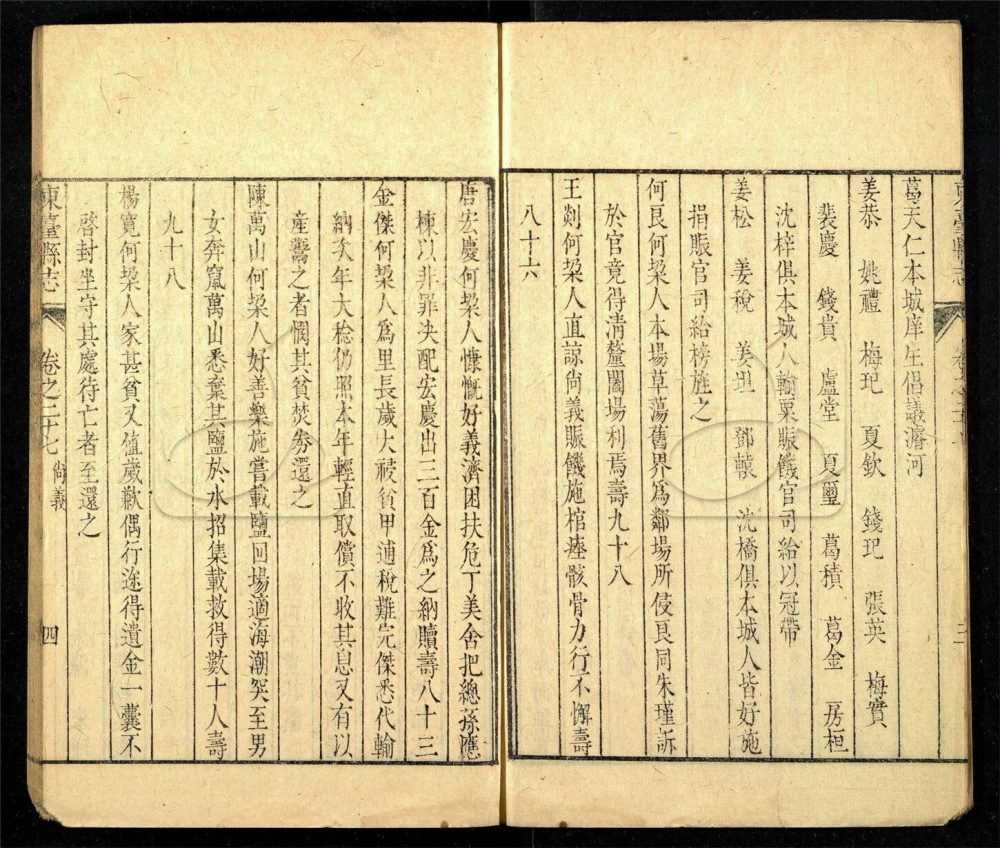 葛天仁本城庠生倡議濬河
姜恭 姚禮 梅玘 夏欽 錢玘 張英 梅實
裴慶 錢貴 盧堂 夏璽 葛積 葛金 房桓
沈梓俱本城人輸粟賑饑官司給以冠帶
姜松 姜稅 姜 鄧轅 沈橋俱本城人皆好施
捐賑官司給榜旌之
何良何垜人本場草蕩舊界為鄰場所侵良同朱瑾訴
於官竟得清釐闔場利焉壽九十八
王剡何垜人直諒尚義賑饑施棺瘞骸骨力行不懈壽
八十六
唐宏慶何垜人慷慨好義濟困扶危丁美舍把總孫應
棟以非罪決配宏慶出三百金為之納贖壽八十三
金傑何垜人為里長歲大祲貧甲逋稅難完傑悉代輸
納次年大稔仍照本年輕直取償不收其息又有以
產鬻之者憫其貧焚券還之
陳萬山何垜人好善樂施嘗載鹽回場適海潮突至男
女奔竄萬山悉棄其鹽於水招集載救得數十人壽
九十八
楊寬何垜人家甚貧又值歲歉偶行途得遺金一囊不
啓封坐守其處待亡者至還之
東臺縣志 卷之二十七 尚義 四